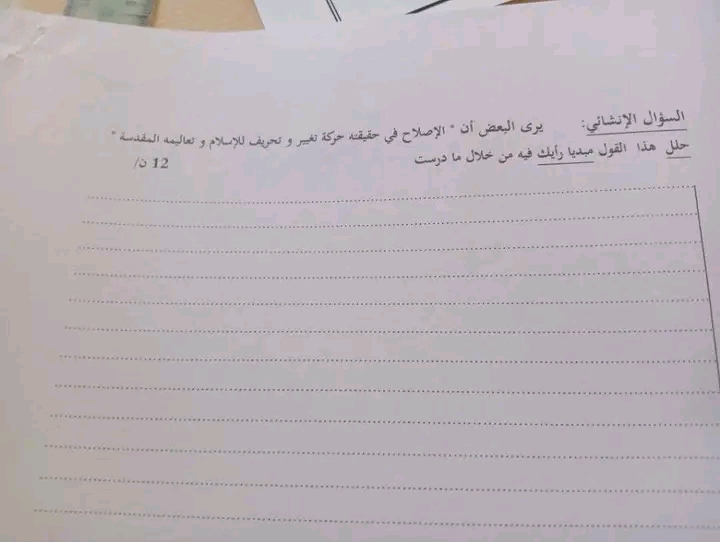 السؤال الإنشائي: يرى البعض أن " الإصلاح في حقيقته حركة تغيير و تحريف للإسلام و تعاليمه المقدسة "
حلل هذا القول مبديا رأيك فيه من خلال ما درست
12 ن/